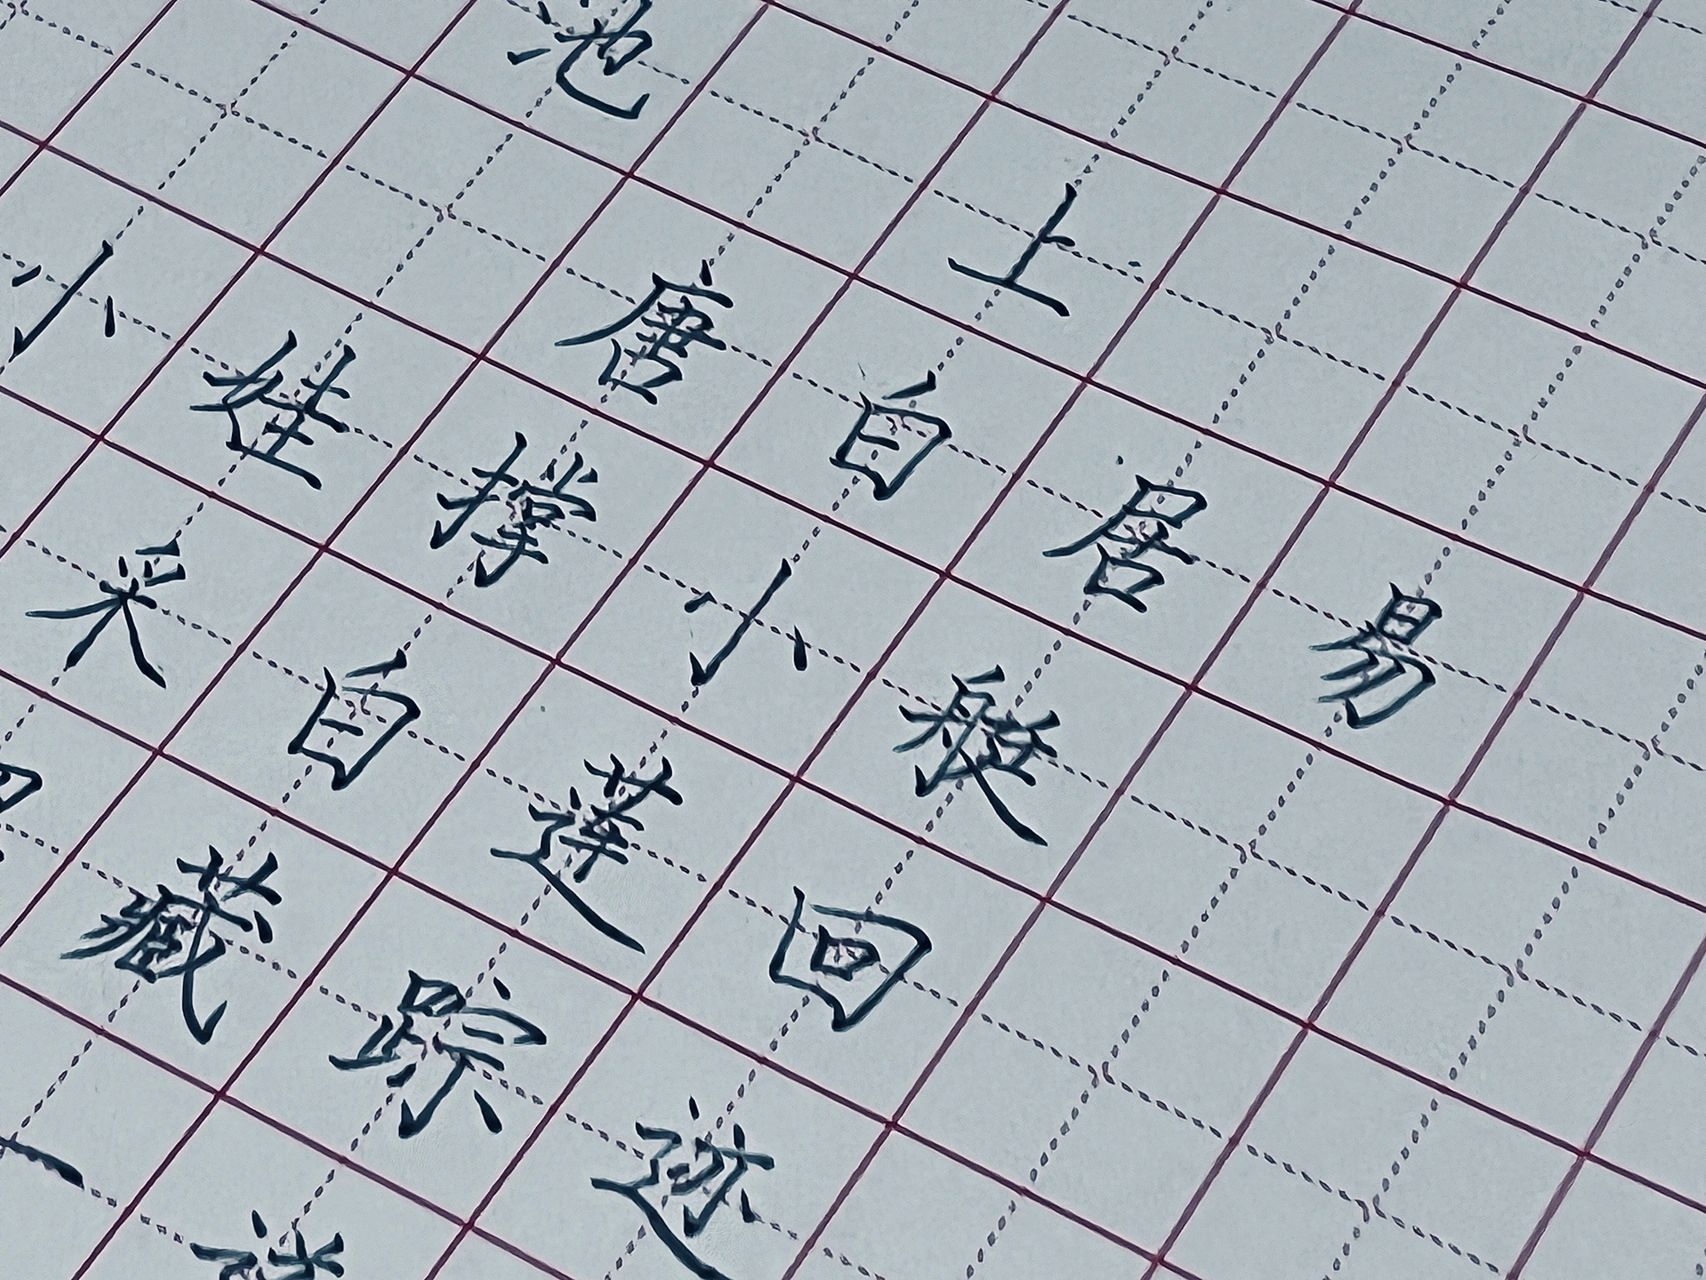 池上
唐 白居易
小娃撑小艇
采白莲回
藏踪迹
一